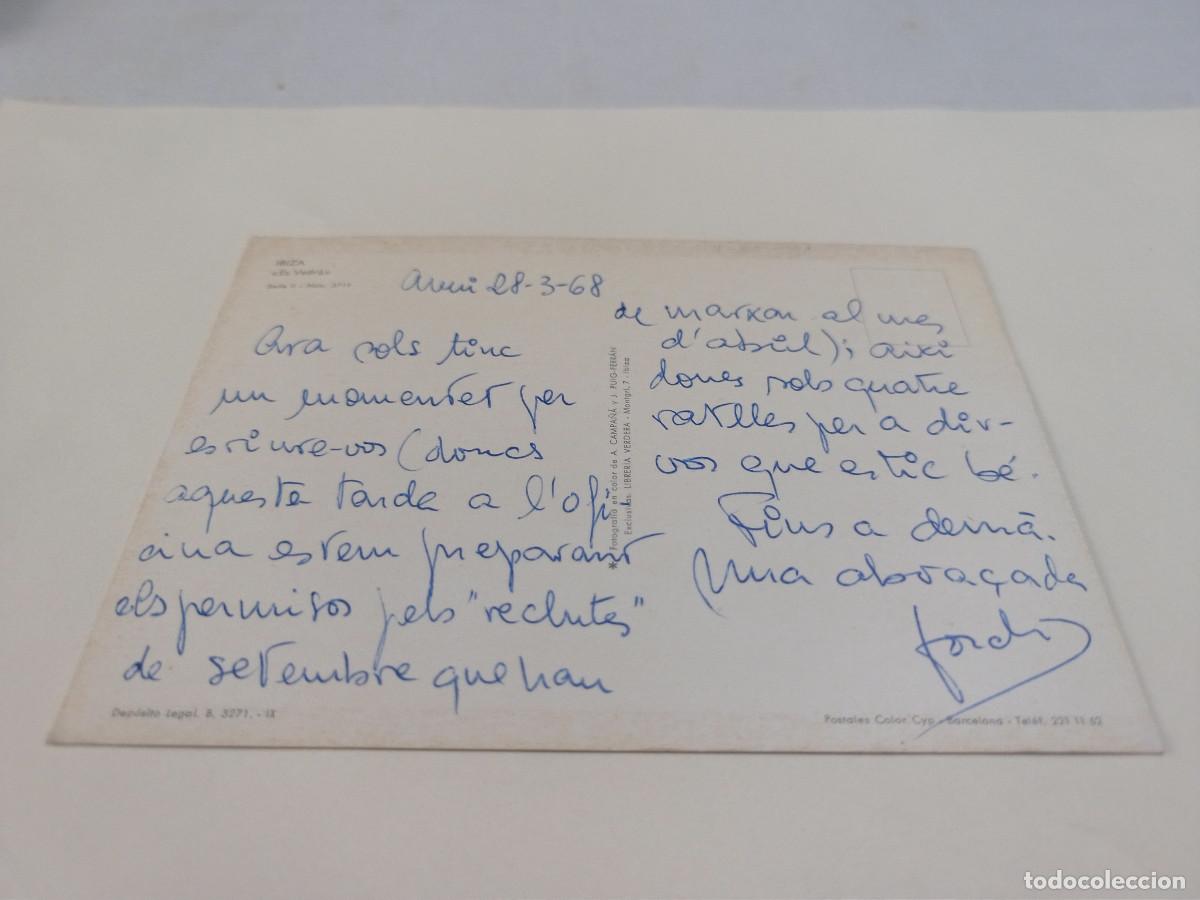 IBIZA
«Es Vedrá»
Avui 28-3-68
Ara sols tinc
un momentet per
escriure-vos (doncs
aquesta tarda a l'ofi,
cina estem preparant
els permisos pels "reclutes"
de setembre que han
de marxar al mes
d'abril); aixi
doncs sols quatre
ratlles per a dir-
vos que estic bé.
Fins a demà.
Una abraçada
Jordi
Fotografía en color de A. CAMPAÑÁ y J. PUIG-FERRÁN
Exclusivas: LIBRERIA VERDERA - Montgrí, 7 - Ibiza
Depósito Legal. B. 3271. - IX
Postales Color Cyp - Barcelona - Teléf. 221 11 52
todocoleccion